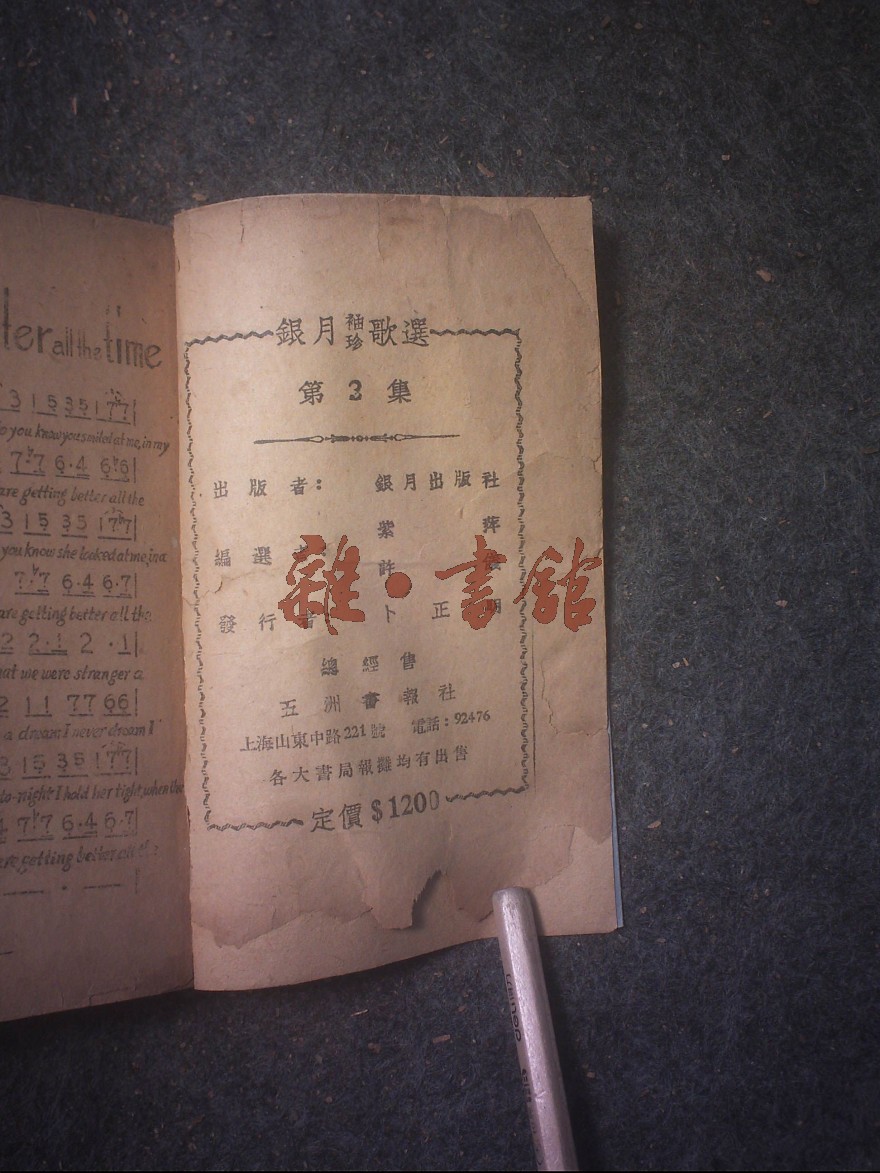 ter all the time
3 1 5 3 5 1 7 7
do you know you smiled at me, in my
7·7 6·4 6 6
are getting better all the
3 1 5 3 5 1 7 7
you know she looked at me, in a
7·7 6·4 6·7
are getting better all the
2 2·1 2 ·1
hat we were stranger a
2 1 1 7 7 6 6
a dream I never dream I
3 1 5 3 5 1 7 7
to-night I hold her tight, when the
7·7 6·4 6·7
are getting better all
銀月袖珍歌選
第 3 集
出版者: 銀月出版社
紫 萍
編選
許
發行者 卜正明
總經售
五洲書報社
上海山東中路221號 電話:92476
各大書局報攤均有出售
定價$1200
雜·書館